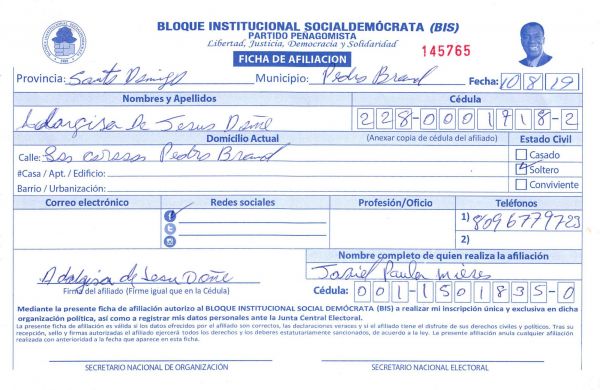 BLOQUE INSTITUCIONAL SOCIALDEMÓCRATA (BIS)
PARTIDO PEÑAGOMISTA
Libertad, Justicia, Democracia y Solidaridad
FICHA DE AFILIACION
145765
Provincia: Santo Domingo Municipio: Pedro Brand Fecha: 10/8/19
Nombres y Apellidos Cédula
Adargisa De Jesus Doñe 228-0001718-2
Domicilio Actual (Anexar copia de cédula del afiliado) Estado Civil
Calle: Los Pedro Brand
Casado
#Casa / Apt. / Edificio:
Soltero
Barrio / Urbanización:
Conviviente
Correo electrónico Redes sociales Profesión/Oficio Teléfonos
1) 8096779723
2)
Nombre completo de quien realiza la afiliación
Adalgisa de Jesu Doñe
Josiel Paula Mieses
Firma del afiliado (Firme igual que en la Cédula)
Cédula: 001-1501835-0
Mediante la presente ficha de afiliación autorizo al BLOQUE INSTITUCIONAL SOCIAL DEMÓCRATA (BIS) a realizar mi inscripción única y exclusiva en dicha
organización política, así como a registrar mis datos personales ante la Junta Central Electoral.
La presente ficha de afiliación es válida si los datos ofrecidos por el afiliado son correctos, las declaraciones veraces y si el afiliado tiene el disfrute de sus derechos civiles y políticos. Tras su
recepción, sello y firmas autorizadas el afiliado ejercerá todos los derechos y los deberes estatutariamente sancionados, de acuerdo a la ley. La presente afiliación anula cualquier afiliación
realizada con anterioridad a la fecha que aparece en esta ficha.
SECRETARIO NACIONAL DE ORGANIZACIÓN SECRETARIO NACIONAL ELECTORAL